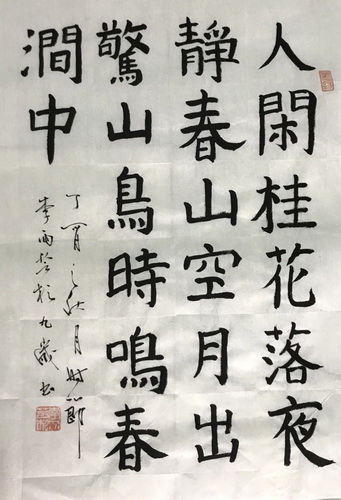 人閑桂花落夜
靜春山空月出
驚山鳥時鳴春
澗中
丁酉之秋月時節
李雨於九歲書